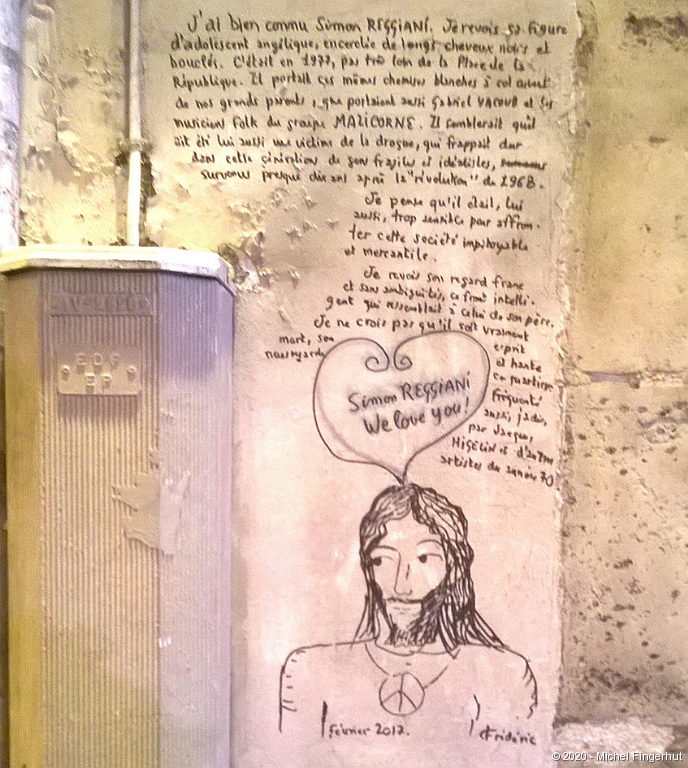 J'ai bien connu Simon REGGIANI. Je revois sa figure
d'adolescent angélique, encerclée de longs cheveux noirs et
bouclés. C'était en 1977, pas très loin de la Place de la
République. Il portait ces mêmes chemises blanches à col ouvert
de nos grands parents, que portaient aussi Gabriel YACOUB et ses
musiciens folk du groupe MALICORNE. Il semblerait qu'il
ait été lui aussi une victime de la drogue, qui frappait dur
dans cette génération de gens fragiles et idéalistes,
survenus presque dix ans après la "révolution" de 1968.
Je pense qu'il était, lui
aussi, trop sensible pour affron-
ter cette société impitoyable
et mercantile.
Je revois son regard franc
et sans ambiguités, ce front intelli-
gent qui ressemblait à celui de son père.
Je ne crois pas qu'il soit vraiment
mort, son esprit
nous regarde et hante
ce quartier
fréquenté
aussi, jadis,
par Jacques
HIGELIN et d'autres
artistes des années 70
Simon REGGIANI
We love you!
EDF
EP
Février 2012.
Frédéric
© 2020 - Michel Fingerhut